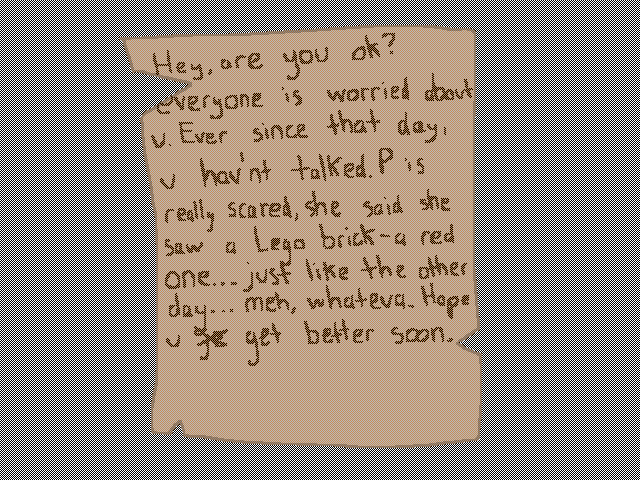 Hey, are you ok?
everyone is worried about
u. Ever since that day,
u hav'nt talked. P is
really scared, she said she
saw a Lego brick-a red
one... just like the other
day... meh, whateva. Hope
u get better soon.